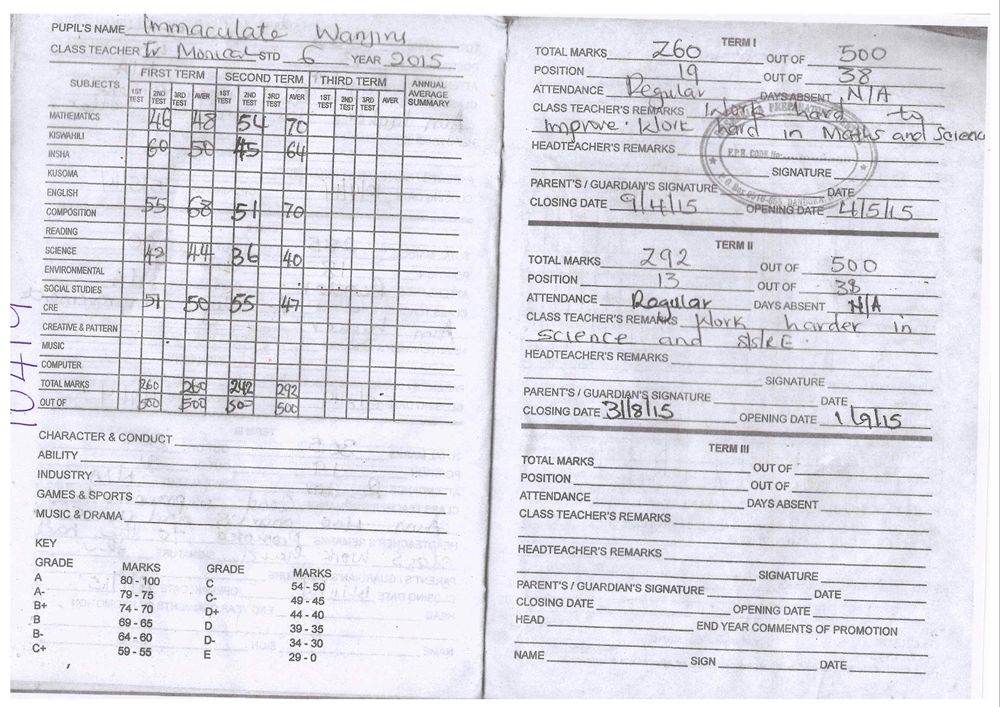 PUPIL'S NAME Immaculate Wanjiru
CLASS TEACHER Tr Monica STD 6 YEAR 2015
SUBJECTS FIRST TERM SECOND TERM THIRD TERM ANNUAL AVERAGE SUMMARY
1ST TEST 2ND TEST 3RD TEST AVER 1ST TEST 2ND TEST 3RD TEST AVER 1ST TEST 2ND TEST 3RD TEST AVER
MATHEMATICS 46 48 54 70
KISWAHILI
INSHA 60 50 45 64
KUSOMA
ENGLISH
COMPOSITION 55 68 51 70
READING
SCIENCE 43 44 36 40
ENVIRONMENTAL
SOCIAL STUDIES
CRE 51 50 55 47
CREATIVE & PATTERN
MUSIC
COMPUTER
TOTAL MARKS 260 260 242 292
OUT OF 500 500 500 500
CHARACTER & CONDUCT
ABILITY
INDUSTRY
GAMES & SPORTS
MUSIC & DRAMA
KEY
GRADE MARKS GRADE MARKS
A 80 - 100 C 54 - 50
A- 79 - 75 C- 49 - 45
B+ 74 - 70 D+ 44 - 40
B 69 - 65 D 39 - 35
B- 64 - 60 D- 34 - 30
C+ 59 - 55 E 29 - 0
TERM I
TOTAL MARKS 260 OUT OF 500
POSITION 19 OUT OF 38
ATTENDANCE Regular DAYS ABSENT N/A
CLASS TEACHER'S REMARKS Work hard to
improve. Work hard in Maths and Science
HEADTEACHER'S REMARKS
SIGNATURE
PARENT'S / GUARDIAN'S SIGNATURE DATE
CLOSING DATE 9/4/15 OPENING DATE 4/5/15
TERM II
TOTAL MARKS 292 OUT OF 500
POSITION 13 OUT OF 38
ATTENDANCE Regular DAYS ABSENT N/A
CLASS TEACHER'S REMARKS Work harder in
science and S/S/RE.
HEADTEACHER'S REMARKS
SIGNATURE
PARENT'S / GUARDIAN'S SIGNATURE DATE
CLOSING DATE 31/8/15 OPENING DATE 1/9/15
TERM III
TOTAL MARKS OUT OF
POSITION OUT OF
ATTENDANCE DAYS ABSENT
CLASS TEACHER'S REMARKS
HEADTEACHER'S REMARKS
SIGNATURE
PARENT'S / GUARDIAN'S SIGNATURE DATE
CLOSING DATE OPENING DATE
HEAD END YEAR COMMENTS OF PROMOTION
NAME SIGN DATE